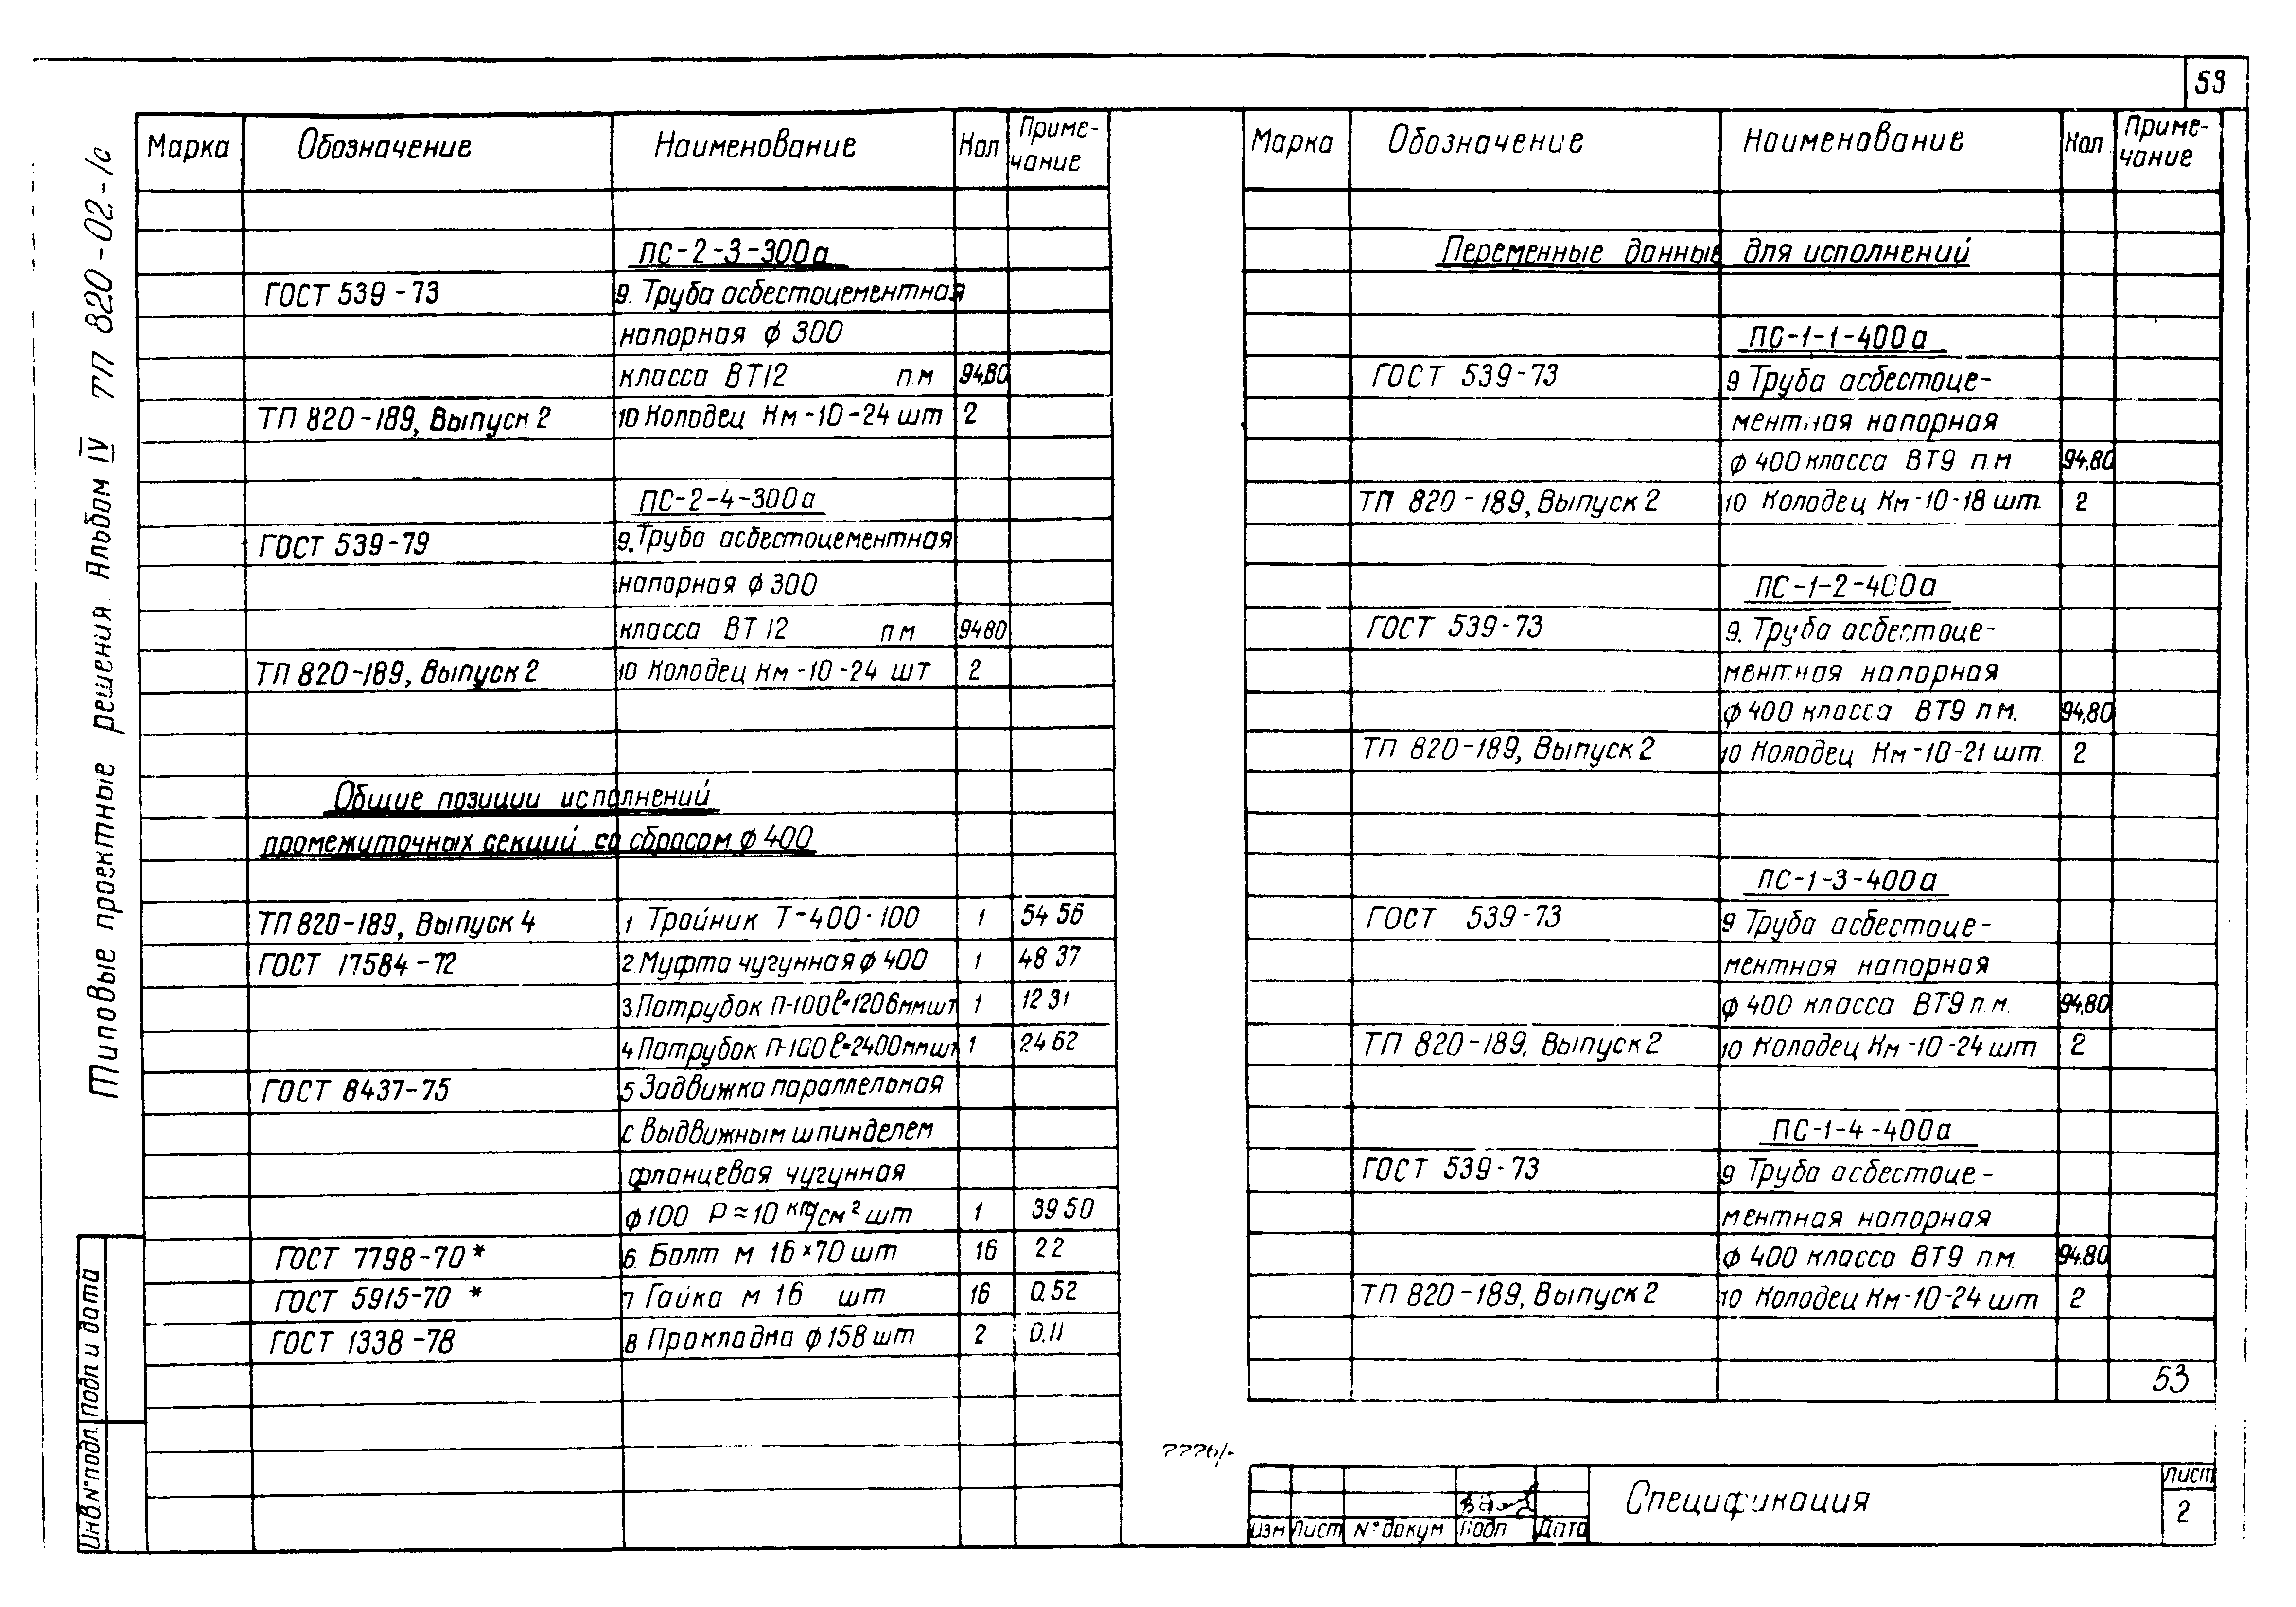 53
Типовые проектные решения. Альбом IV ТП 820-02-1с
Марка Обозначение Наименование Кол Приме-
чание
ПС-2-3-300а
ГОСТ 539-73 9. Труба асбестоцементная
напорная ф 300
класса ВТ12 п.м 94,80
ТП 820-189, Выпуск 2 10 Колодец Км-10-24 шт 2
ПС-2-4-300а
ГОСТ 539-79 9. Труба асбестоцементная
напорная ф 300
класса ВТ 12 пм 9480
ТП 820-189, Выпуск 2 10 Колодец Км-10-24 шт 2
Общие позиции исполнений
промежуточных секций со сбросом ф 400
ТП 820-189, Выпуск 4 1 Тройник Т-400-100 1 54 56
ГОСТ 17584-72 2. Муфта чугунная ф 400 1 48 37
3. Патрубок П-100 ℓ=1206мм шт 1 12 31
4 Патрубок П-100 ℓ=2400мм шт 1 24 62
ГОСТ 8437-75 5 Задвижка параллельная
с выдвижным шпинделем
фланцевая чугунная
ф 100 Р≈10 кг/см² шт 1 39 50
ГОСТ 7798-70* 6. Болт м 16×70 шт 16 22
ГОСТ 5915-70 * 7 Гайка м 16 шт 16 0.52
ГОСТ 1338-78 8 Прокладка ф 158 шт 2 0.11
Марка Обозначение Наименование Кол Приме-
чание
Переменные данные для исполнений
ПС-1-1-400а
ГОСТ 539-73 9. Труба асбестоце-
ментная напорная
ф 400 класса ВТ9 п м 94,80
ТП 820-189, Выпуск 2 10 Колодец Км-10-18 шт. 2
ПС-1-2-400а
ГОСТ 539-73 9. Труба асбестоце-
ментная напорная
ф 400 класса ВТ9 п.м. 94,80
ТП 820-189, Выпуск 2 10 Колодец Км-10-21 шт. 2
ПС-1-3-400а
ГОСТ 539-73 9 Труба асбестоце-
ментная напорная
ф 400 класса ВТ9 п.м. 94,80
ТП 820-189, Выпуск 2 10 Колодец Км-10-24 шт 2
ПС-1-4-400а
ГОСТ 539-73 9 Труба асбестоце-
ментная напорная
ф 400 класса ВТ9 п.м. 94.80
ТП 820-189, Выпуск 2 10 Колодец Км-10-24 шт 2
53
Инв № подл. Подп и дата
изм Лист № докум Подп Дата
Спецификация
Лист
2